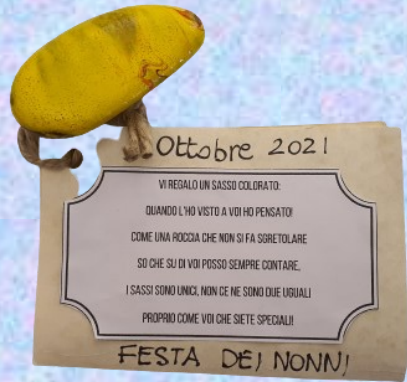 Ottobre 2021
VI REGALO UN SASSO COLORATO:
QUANDO L'HO VISTO A VOI HO PENSATO!
COME UNA ROCCIA CHE NON SI FA SGRETOLARE
SO CHE SU DI VOI POSSO SEMPRE CONTARE,
I SASSI SONO UNICI, NON CE NE SONO DUE UGUALI
PROPRIO COME VOI CHE SIETE SPECIALI!
FESTA DEI NONNI